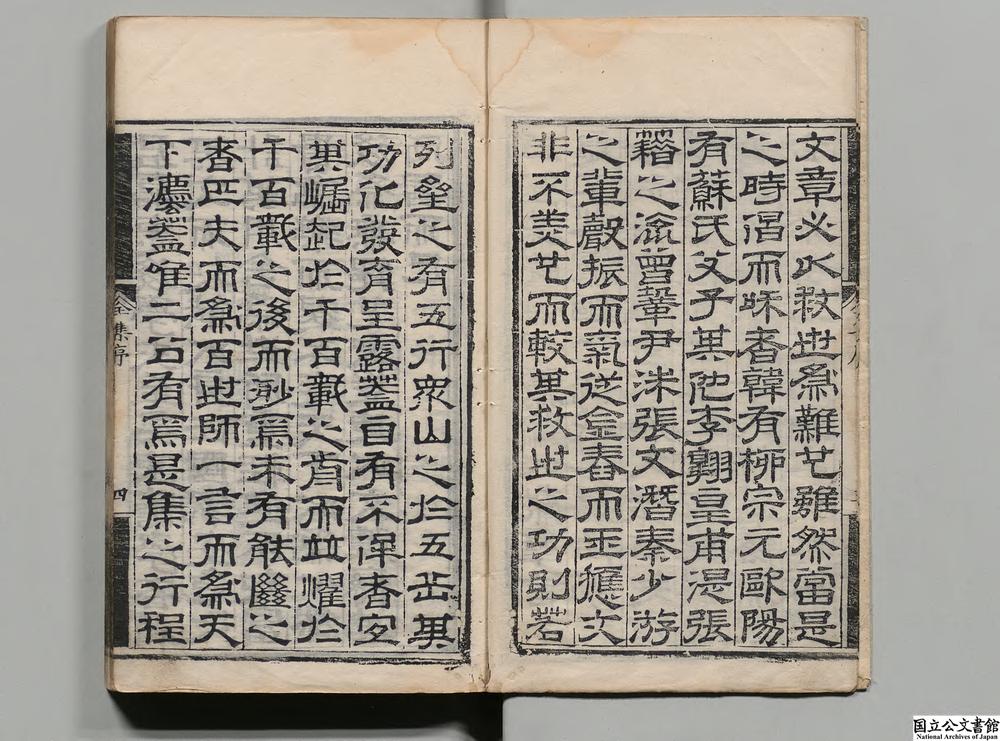 文章必以救世爲難也雖然當是
之時倡而咊者韓有柳宗元歐陽
有蘇氏父子其他李翱皇甫湜張
籍之流曾鞏尹洙張文潛秦少游
之輩聲振而氣從金舂而玉應文
非不美也而較其救世之功則若
列星之有五行衆山之於五岳其
功化發育呈露蓋自有不侔者宜
其崛起於千百載之前而並耀於
千百載之後而眇焉未有能繼之
者匹夫而爲百世師一言而爲天
下灋蓋唯二公有焉是集之行程
全集序
四
国立公文書館
National Archives of Japan